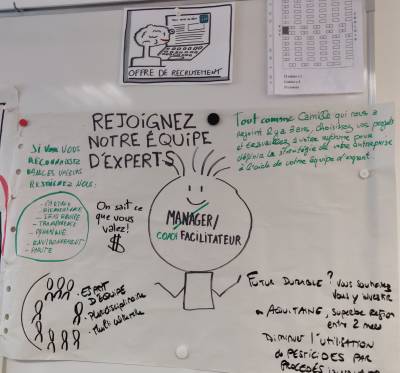 OFFRE DE RECRUTEMENT
REJOIGNEZ
NOTRE ÉQUIPE
D'EXPERTS
Tout comme Camille qui nous a
rejoint il y a 3 ans, choisissez vos projets
et travaillez à votre rythme pour
définir la stratégie de votre entreprise
à l'aide de votre équipe d'expert.
SI VOUS VOUS
RECONNAISSEZ
DANS CES VALEURS
REJOIGNEZ NOUS:
BIENVEILLANCE
TRANSPARENCE
DYNAMISME
ENVIRONNEMENT
PARITÉ
On sait ce
que vous
valez!
$
MANAGER/
COACH FACILITATEUR
ESPRIT
D'ÉQUIPE
Pluridisciplinaire
Multi culturelle
FUTUR DURABLE? Vous souhaitez
vous y investir
en AQUITAINE, superbe Région
entre 2 mers
DIMINUE l'utilisation
de PESTICIDES PAR
PROCÉDÉS